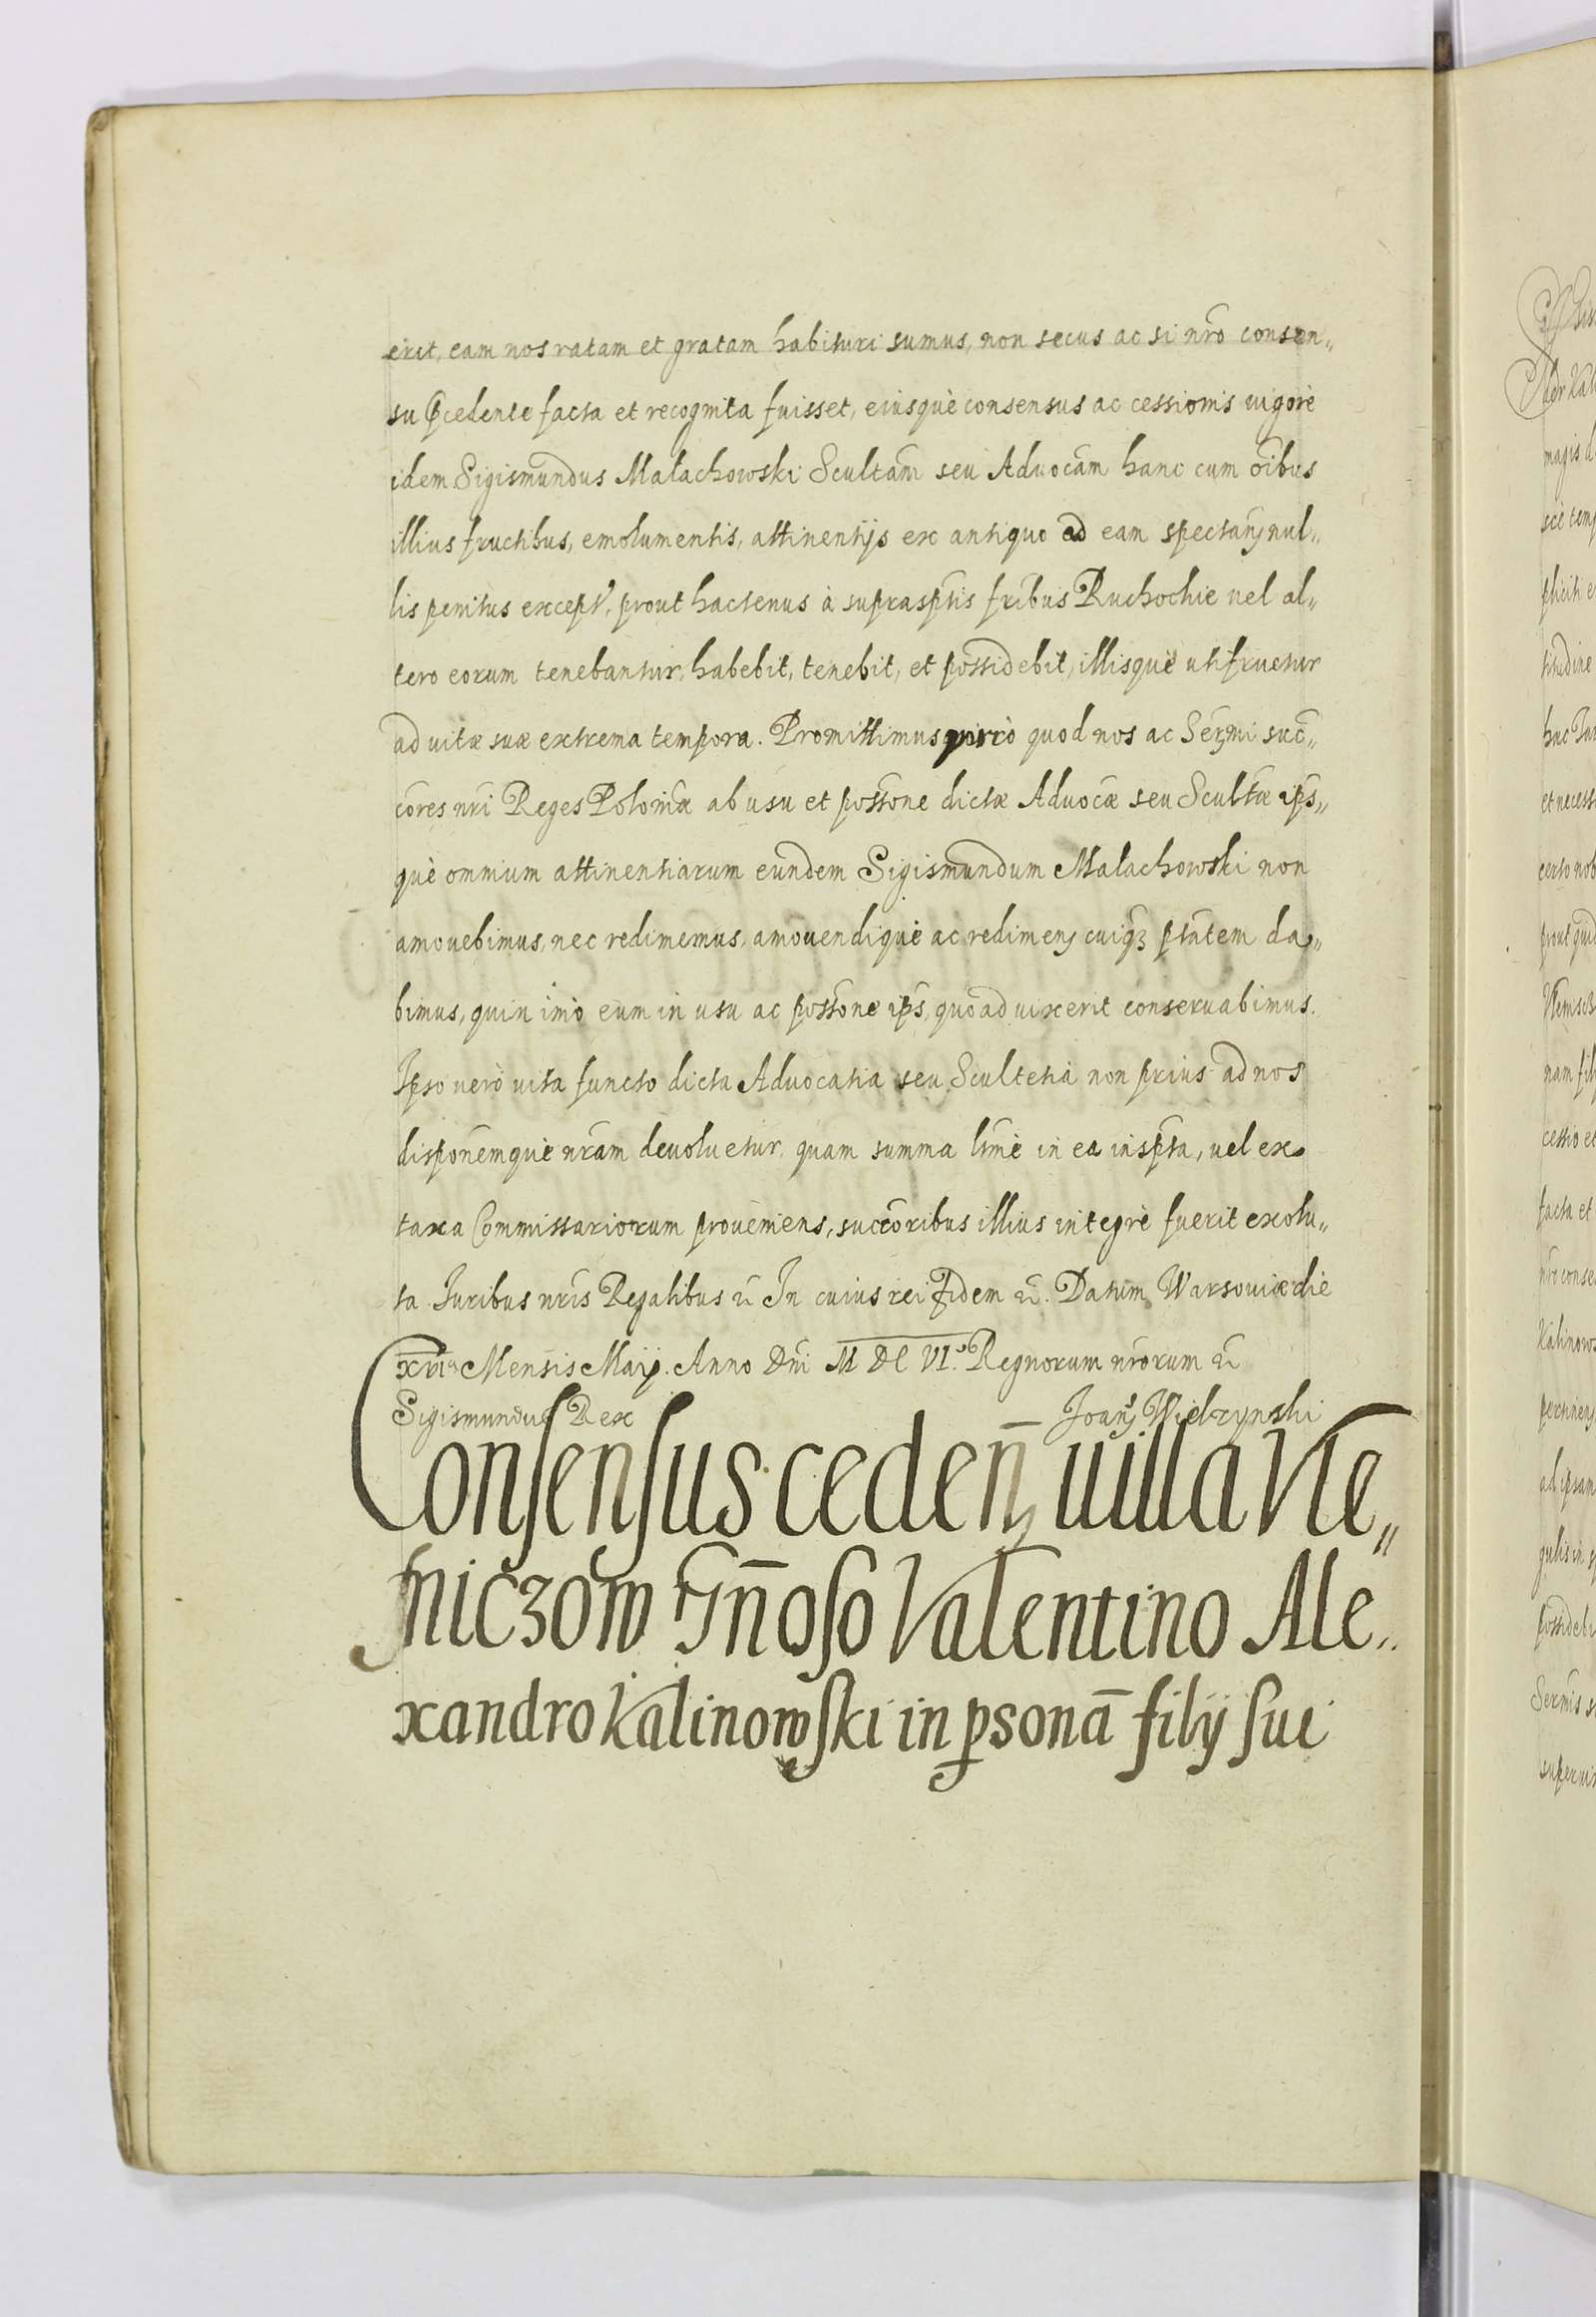 erit, eam nos ratam et gratam habituri sumus, non secus ac si nrō consen„
su p̄cedente facta et recognita fuisset, eiusquè consensus ac cessionis uigorè
idem Sigismundus Malachowski Scultām seu Aduocām hanc cum oībus
illius fructibus, emolumentis, attinentijs ex antiquo ad eam spectanꝭ nul„
lis penitus except, prout hactenus à suprasp̄tis frībus Ruchochie uel al„
tero eorum tenebantur, habebit, tenebit, et possidebit, illisquè utifruetur
ad uitæ suæ extrema tempora. Promittimus porrò quod nos ac Serm̄i suc̄„
cōres nrī Reges Poloniæ ab usu et possōne dictæ Aduocæ seu Scultæ ips̄„
què omnium attinentiarum eundem Sigismundum Malachowski non
amouebimus, nec redimemus, amouendiquè ac redimenꝭ cuiqꝫ ptātem da„
bimus, quin imò eum in usu ac possōne ips̄, quoad uixerit conseruabimus.
Ipso uerò uita functo dicta Aduocatia seu Scultetia non prius ad nos
dispōnemquè nrām deuoluetur, quam summa ltmè in ea insp̄ta, uel ex
taxa Commissariorum proueniens, succōribus illius integrè fuerit exolu„
ta Iuribus nrīs Regalibus ꝛc̄ In cuius rei fidem ꝛc̄. Datum Warsouiæ die
Mensis Maij. Anno Dn̄i M DC VI.° Regnorum nrōrum ꝛc̄
Sigismundus Rex Joanꝭ Wielzynski
Consensus cedenꝭ uilla Nie„
mic̄zow Gn̄oso Valentino Ale„
xandro Kalinowski in ꝑsonā filij sui